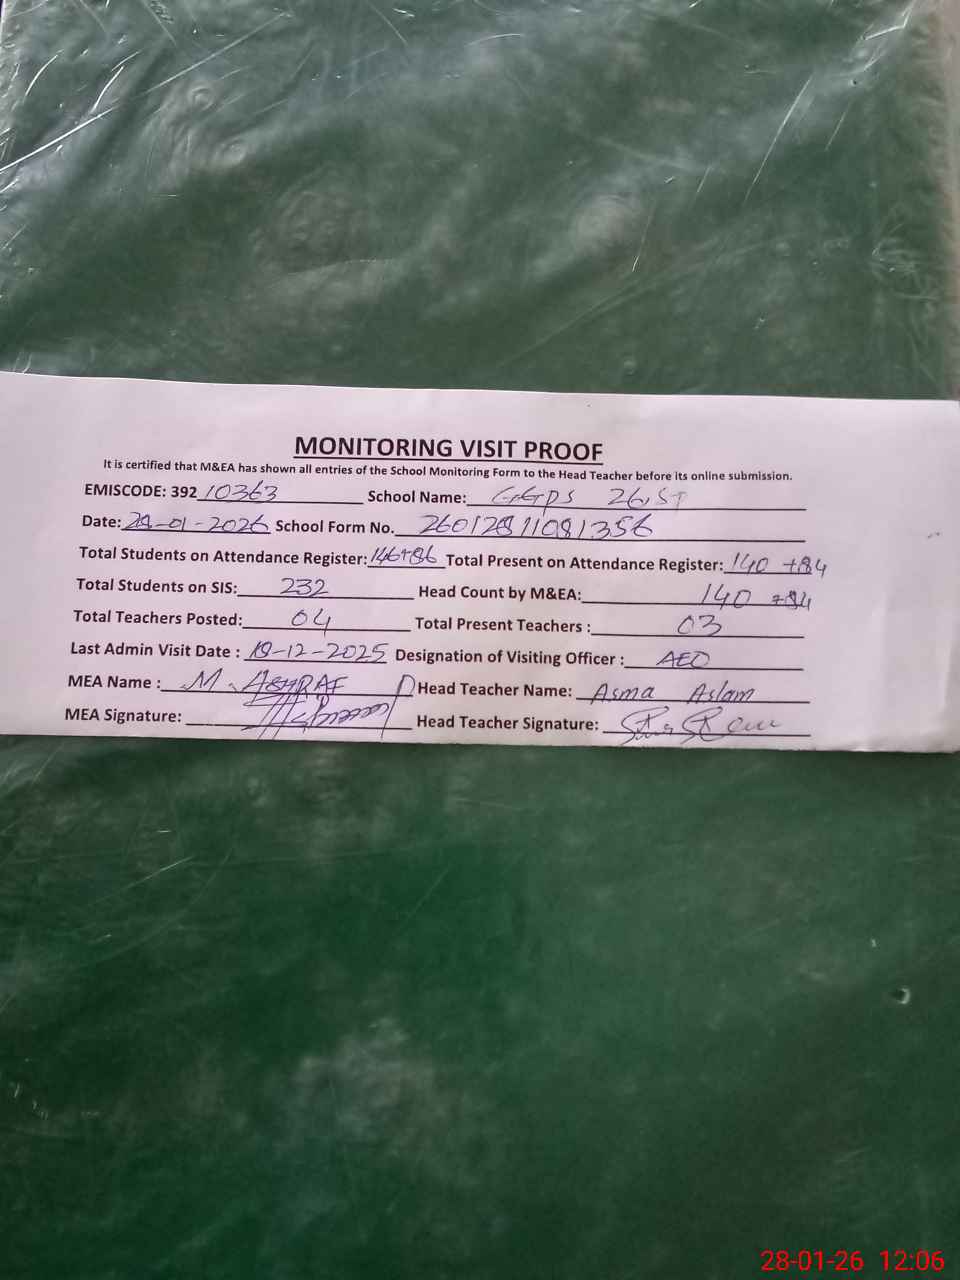 MONITORING VISIT PROOF
It is certified that M&EA has shown all entries of the School Monitoring Form to the Head Teacher before its online submission.
EMISCODE: 392 10363 School Name: GGPS 26,ST
Date: 28-01-2026 School Form No. 26012811081356
Total Students on Attendance Register: 146+86 Total Present on Attendance Register: 140 +84
Total Students on SIS: 232 Head Count by M&EA: 140 +84
Total Teachers Posted: 04 Total Present Teachers : 03
Last Admin Visit Date : 19-12-2025 Designation of Visiting Officer : AEO
MEA Name : M. ASHRAF Head Teacher Name: Asma Aslam
MEA Signature: Head Teacher Signature:
28-01-26 12:06